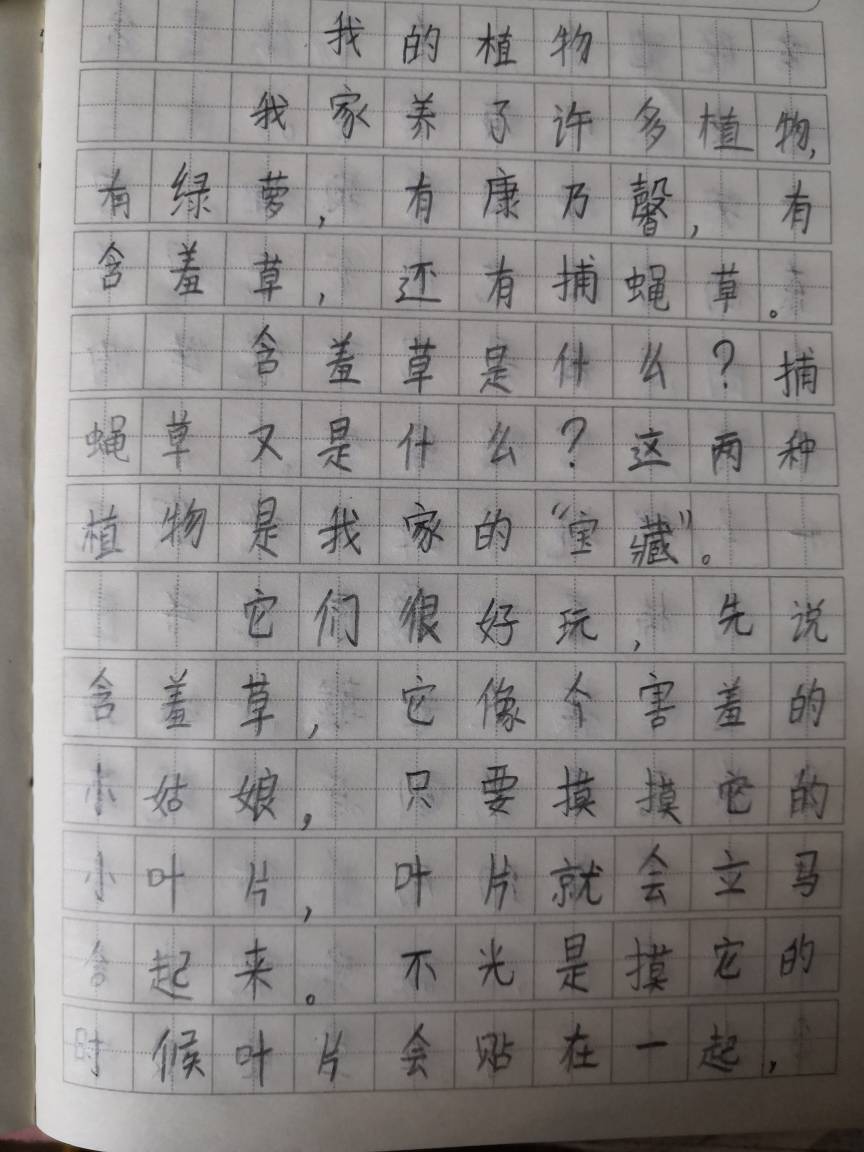 我的植物
我家养了许多植物,
有绿萝,有康乃馨,有
含羞草,还有捕蝇草。
含羞草是什么?捕
蝇草又是什么?这两种
植物是我家的“宝藏”。
它们很好玩,先说
含羞草,它像个害羞的
小姑娘,只要摸摸它的
小叶片,叶片就会立马
含起来。不光是摸它的
时候叶片会贴在一起,